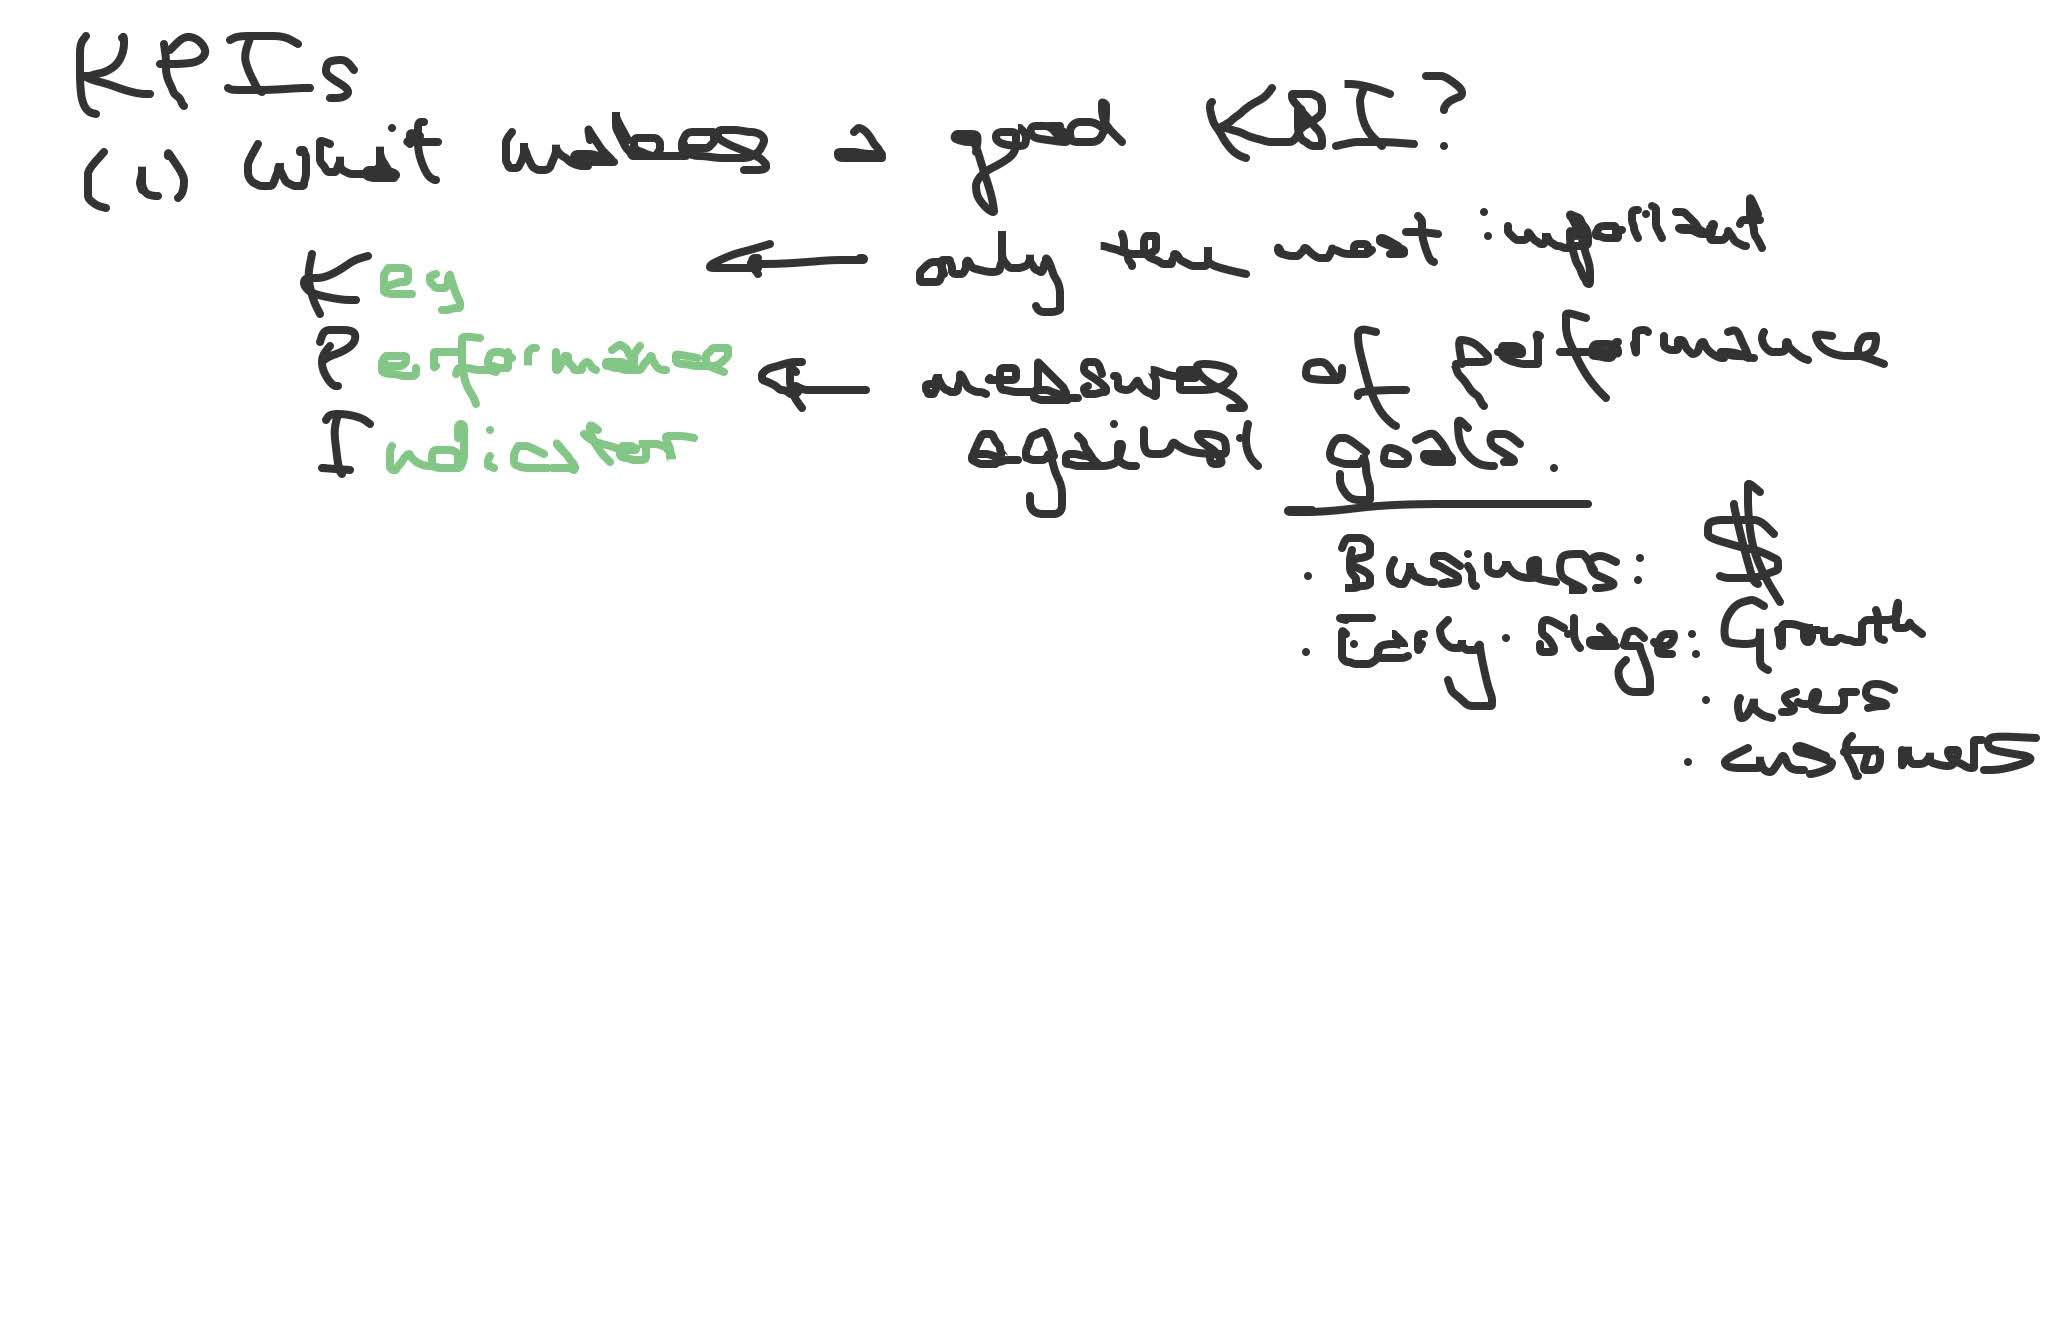 KPIs
(1) What makes a good KPI?
Key ← only the most important
Performance ← measures of performance
Indicator against goals.
· Business: $
· Early-stage: Growth
· users
· customers